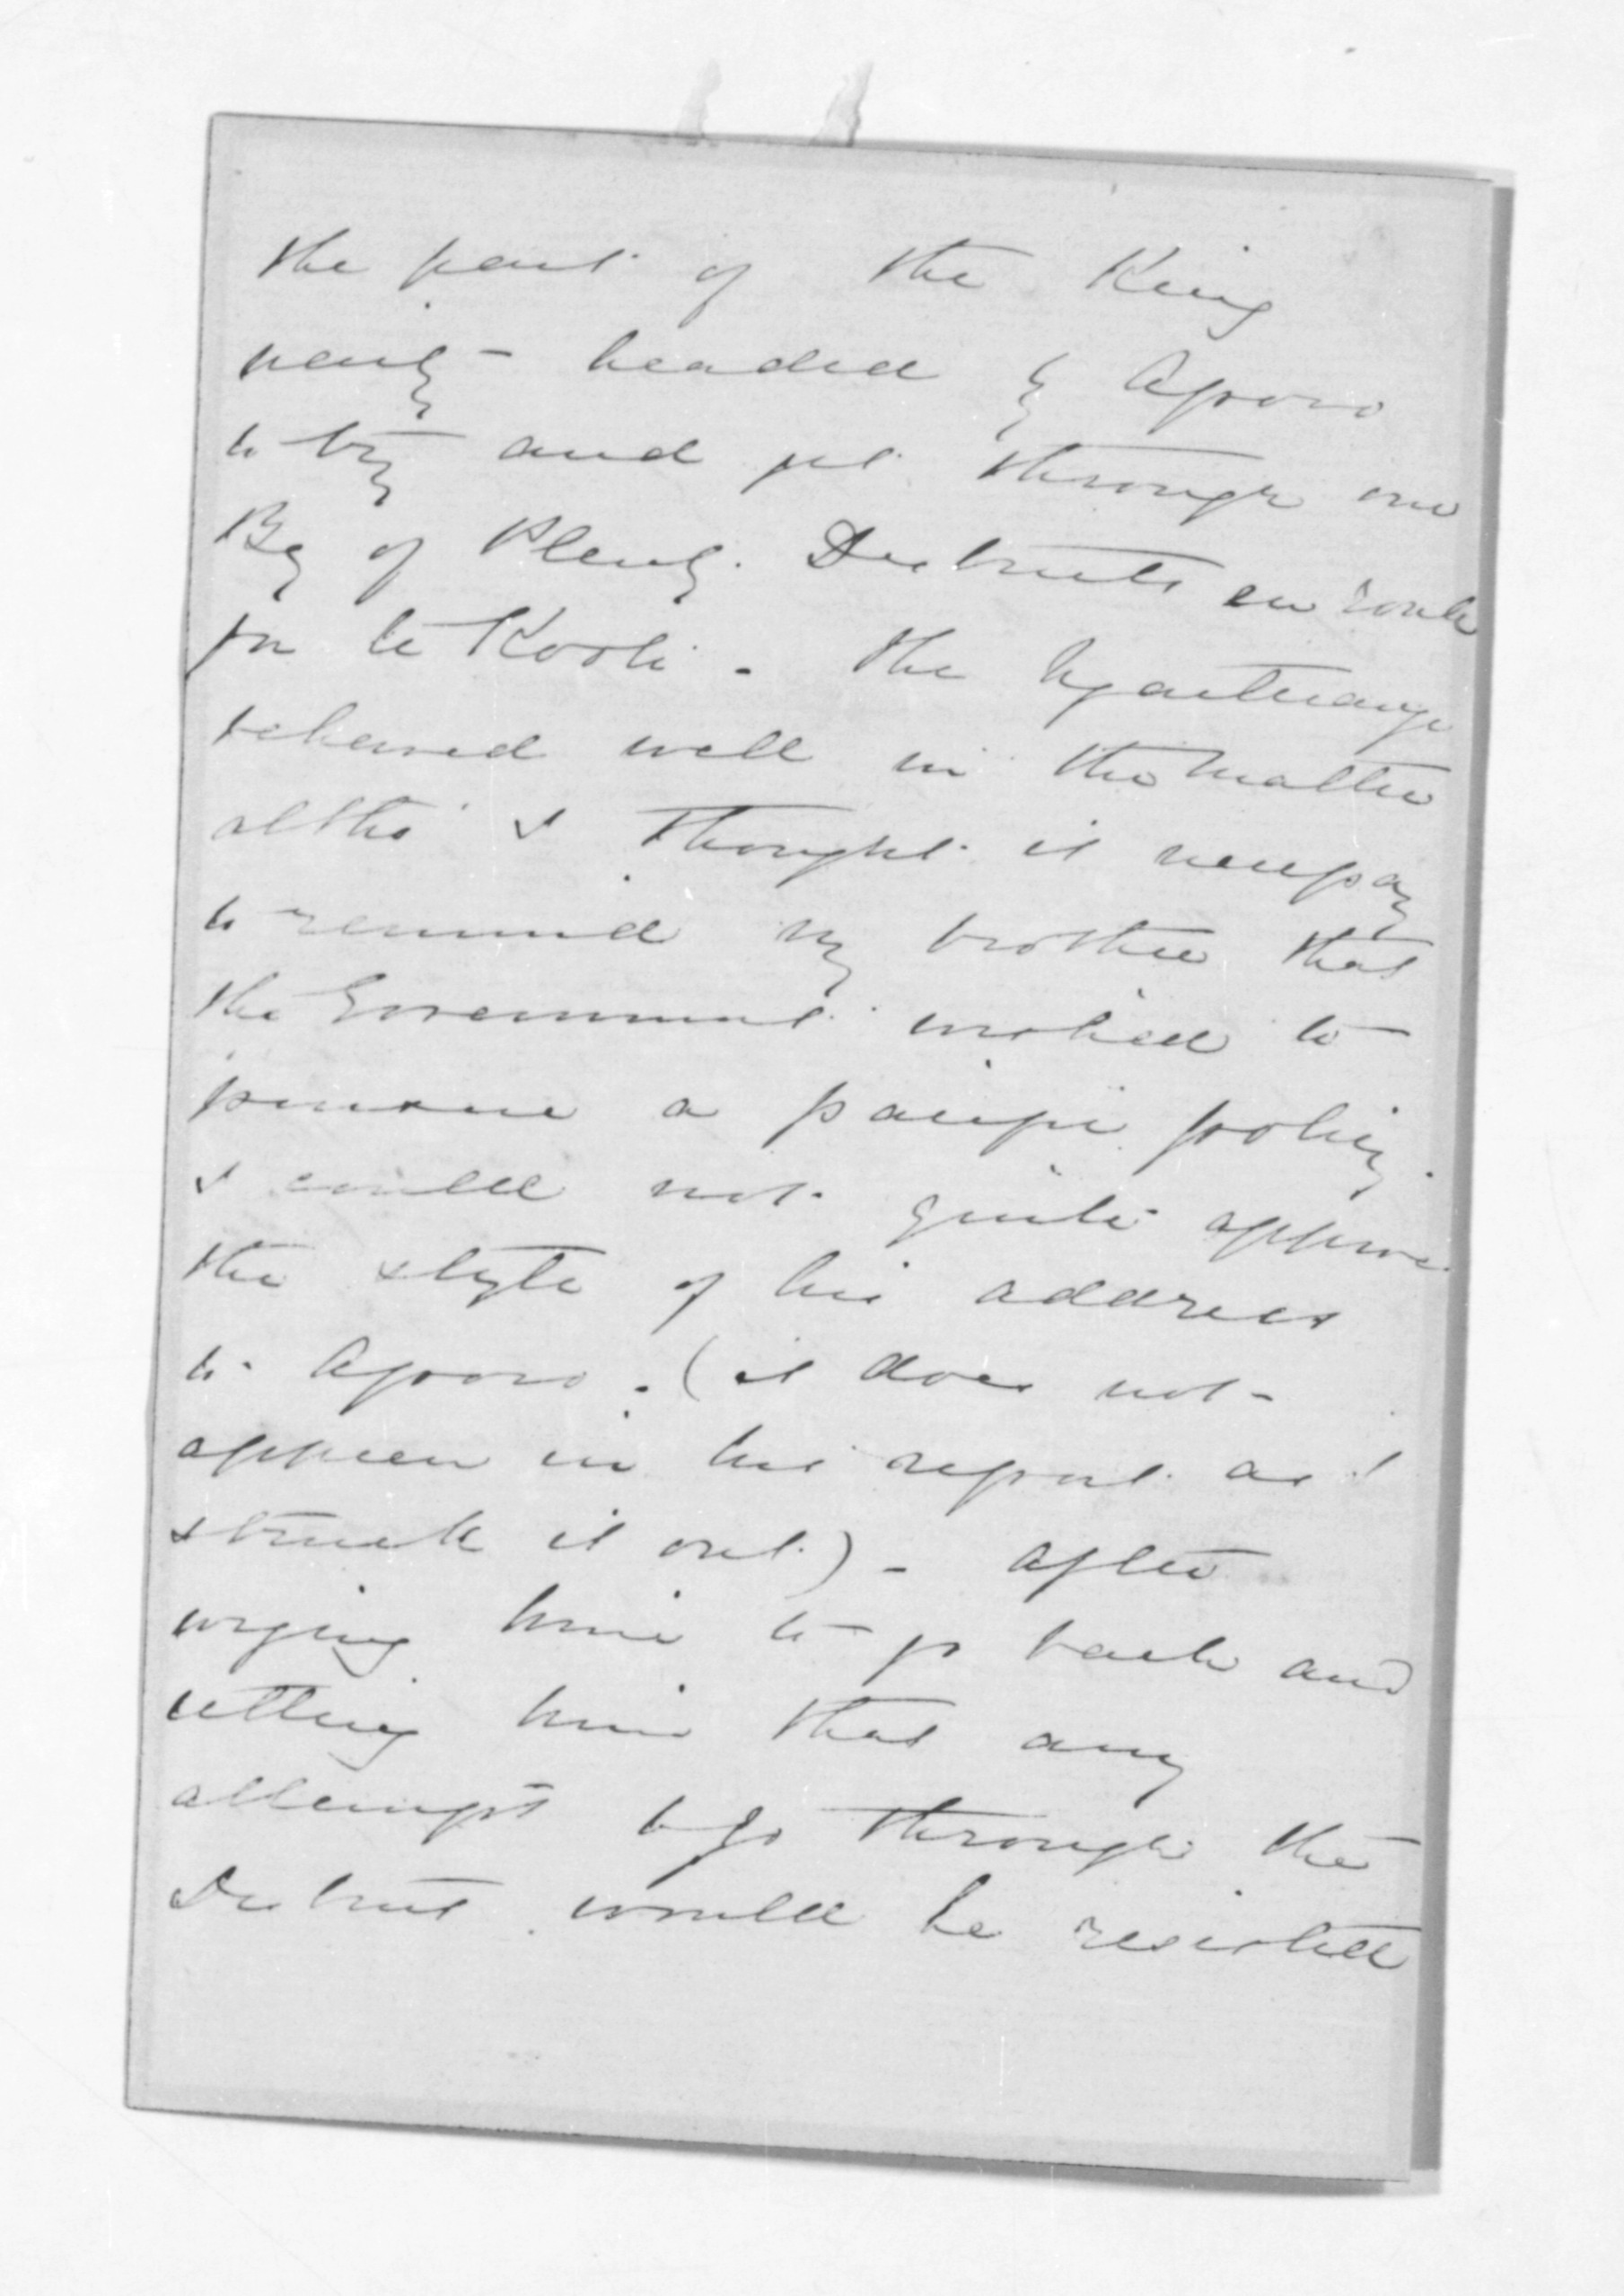 the part of the King
party - headed by Aporo
to try and get through our
Bay of Plenty Districts en route
for Te Kooti - The Ngaiterangi
behaved well in the matter
altho' I thought it necessary
to remind my brother that
the Government wished to
pursue a pacific policy.
I could not quite approve
the style of his address
to Aporo. (it does not
appear in his report as I
struck it out) - After
urging him to go back and
telling him that any
attempt to go through the
District would be resisted